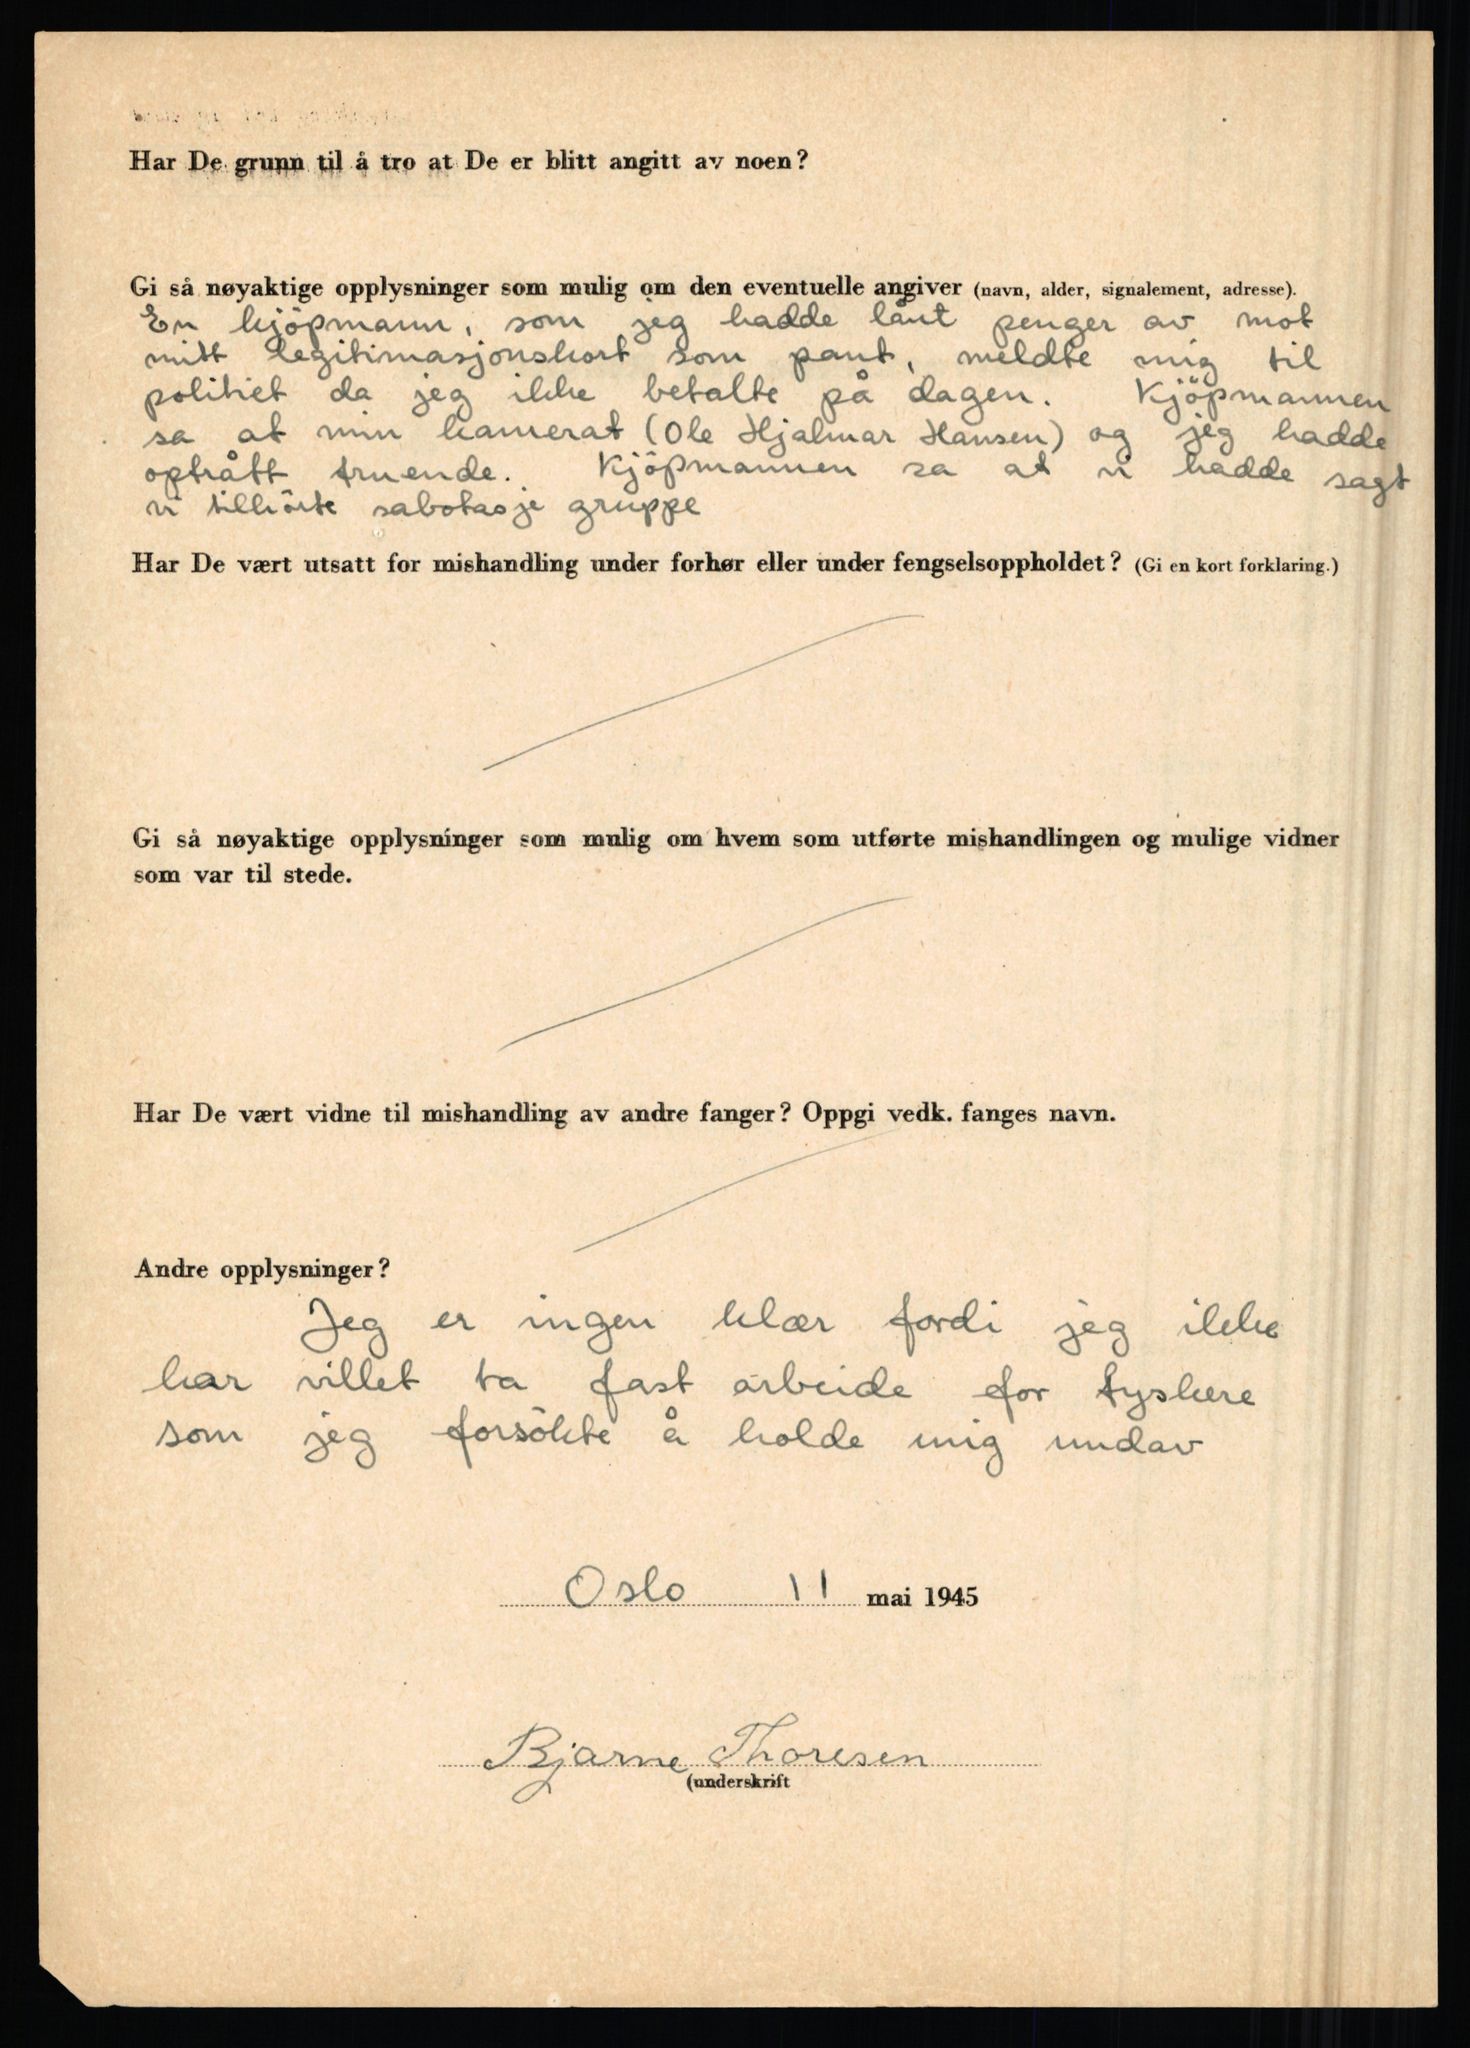 Har De grunn til å tro at De er blitt angitt av noen?
Gi så nøyaktige opplysninger som mulig om den eventuelle angiver (navn, alder, signalement, adresse).
En kjöpmann, som jeg hadde lånt penger av mot
mitt legitimasjonskort som pant, meldte mig til
politiet da jeg ikke betalte på dagen. Kjöpmannen
sa at min kamerat (Ole Hjalmar Hansen) og jeg hadde
optrått truende. Kjöpmannen sa at vi hadde sagt
vi tilhörte sabotasje gruppe
Har De vært utsatt for mishandling under forhør eller under fengselsoppholdet? (Gi en kort forklaring.)
Gi så nøyaktige opplysninger som mulig om hvem som utførte mishandlingen og mulige vidner
som var til stede.
Har De vært vidne til mishandling av andre fanger? Oppgi vedk. fanges navn.
Andre opplysninger?
Jeg er ingen klær fordi jeg ikke
har villet ta fast arbeide for tyskere
som jeg forsökte å holde mig undav
Oslo 11 mai 1945
Bjarne Thoresen
(underskrift